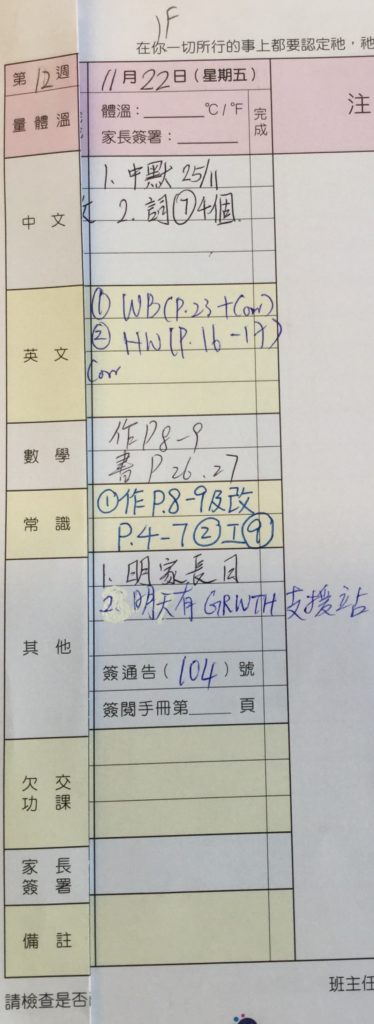 1F
在你一切所行的事上都要認定祂，祂
第12週
11月22日（星期五）
量體溫
體溫：______℃/℉
家長簽署：______
完成
注
中文
1. 中默 25/11
2. 詞⑦4個.
英文
① WB(P.23+Corr)
② HW(P.16-17)
Corr
數學
作P8-9
書P26.27
常識
①作P.8-9及改
P.4-7②工⑨
其他
1. 明家長日
2. 明天有 GRWTH 支援站
簽通告（104）號
簽閱手冊第____頁
欠交功課
家長簽署
備註
請檢查是否
班主任